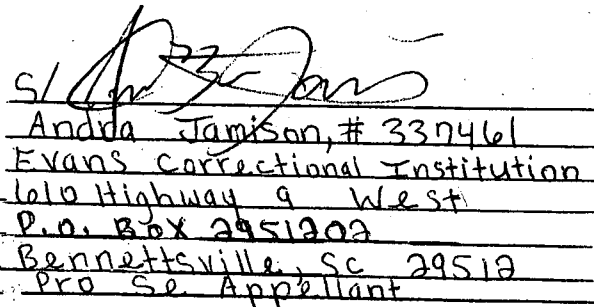 S/
Andra Jamison, # 337461
Evans Correctional Institution
610 Highway 9 West
P.O. Box 2951202
Bennettsville, SC 29512
Pro Se Appellant